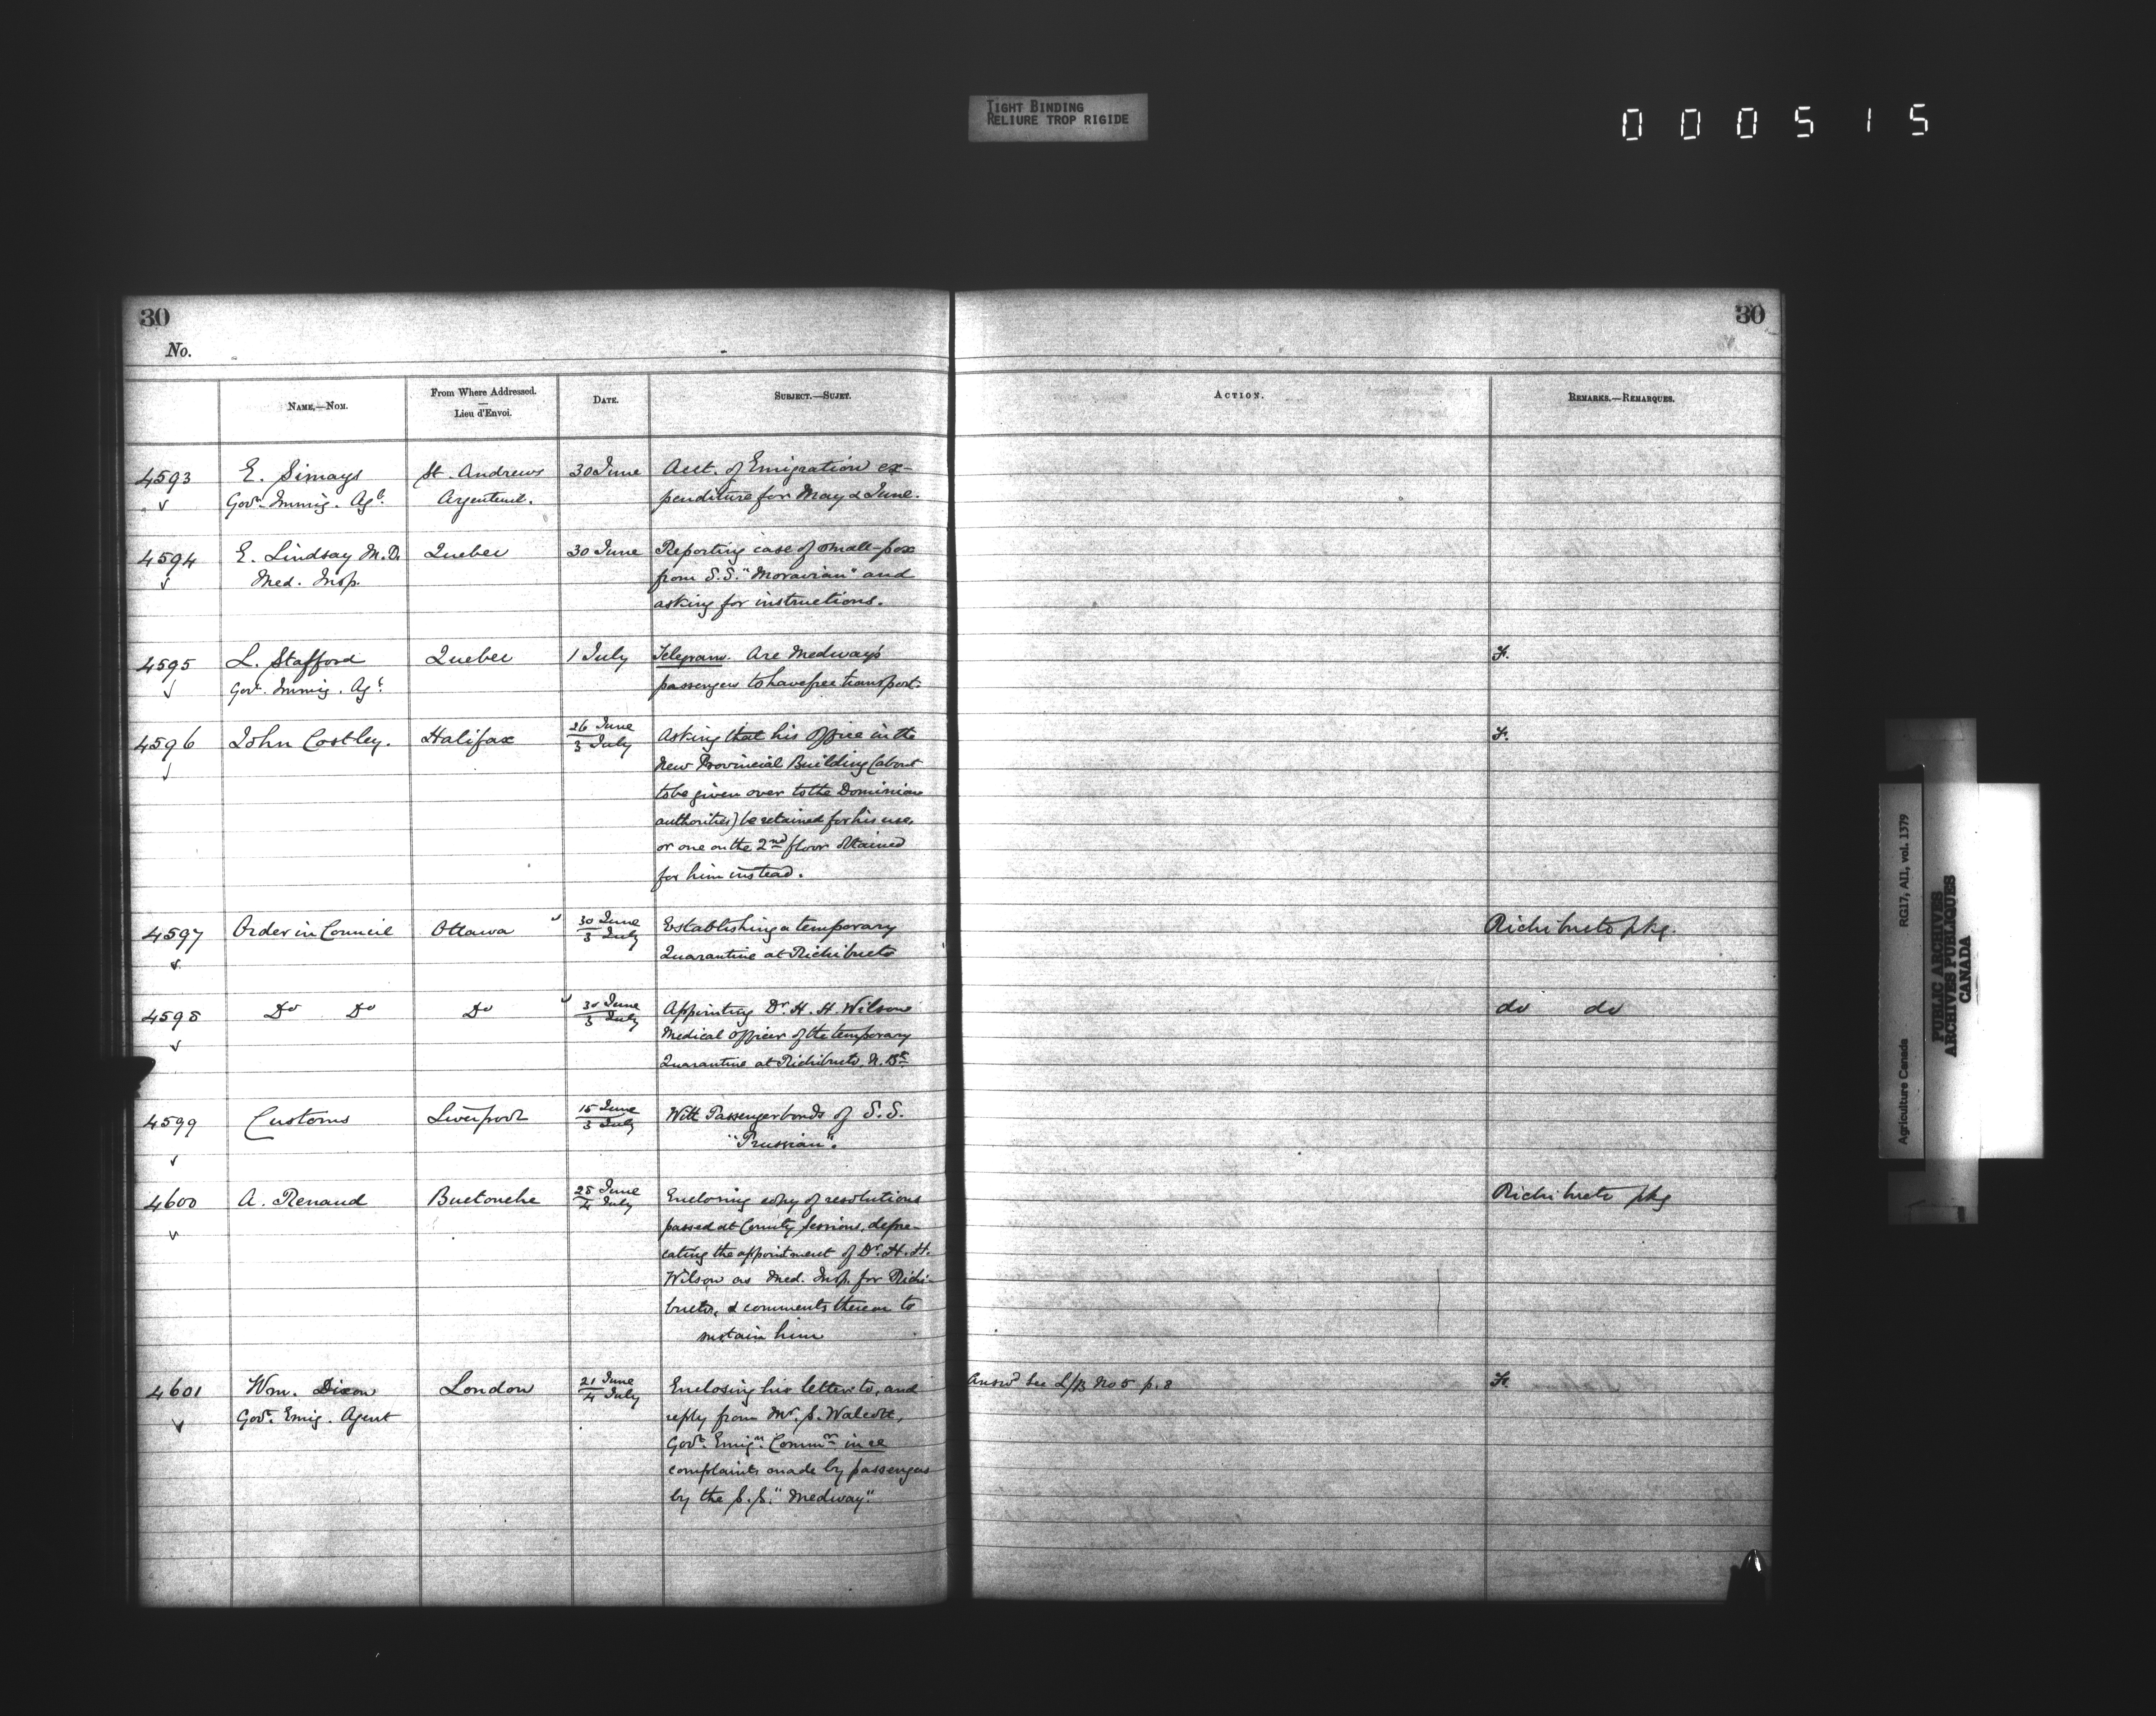 TIGHT BINDING
RELIURE TROP RIGIDE
000515
30
30
No.
NAME.—NOM.
From Where Addressed.
—
Lieu d'Envoi.
DATE.
SUBJECT.—SUJET.
ACTION.
REMARKS.—REMARQUES.
4593 E. Simays St. Andrews 30 June Acct. of Emigration ex-
Govt. Immig. Agt. Argenteuil. penditure for May & June.
4594 E. Lindsay M.D. Quebec 30 June Reporting case of small-pox
Med. Insp. from S.S. "Moravian" and
asking for instructions.
4595 L. Stafford Quebec 1 July Telegram. Are Medway's F.
Govt. Immig. Agt. passengers to have free transport.
4596 John Costley. Halifax 26 June Asking that his Office in the F.
3 July
New Provincial Building (about
to be given over to the Dominion
authorities) be retained for his use,
or one on the 2nd floor obtained
for him instead.
4597 Order in Council Ottawa 30 June Establishing a temporary Richibucto pkg.
3 July
Quarantine at Richibucto
4598 Do Do Do 30 June Appointing Dr. H. H. Wilson do do
3 July
Medical Officer of the temporary
Quarantine at Richibucto, N. Bk
4599 Customs Liverpool 15 June With Passenger bonds of S.S.
3 July
"Prussian".
4600 A. Renaud Buctouche 28 June Enclosing copy of resolutions Richibucto pkg
4 July
passed at County Sessions, depre-
cating the appointment of Dr. H. H.
Wilson as Med. Insp. for Richi-
bucto, & comments thereon to
sustain him
4601 Wm. Dixon London 21 June Enclosing his letter to, and Answd. See L/B No 5 p. 8 F.
4 July
Govt. Emig. Agent reply from Mr. S. Walcott,
Govt. Emign. Commr. in re
complaints made by passengers
by the S.S. "Medway".
Agriculture Canada RG17, AII, vol. 1379
PUBLIC ARCHIVES
ARCHIVES PUBLIQUES
CANADA